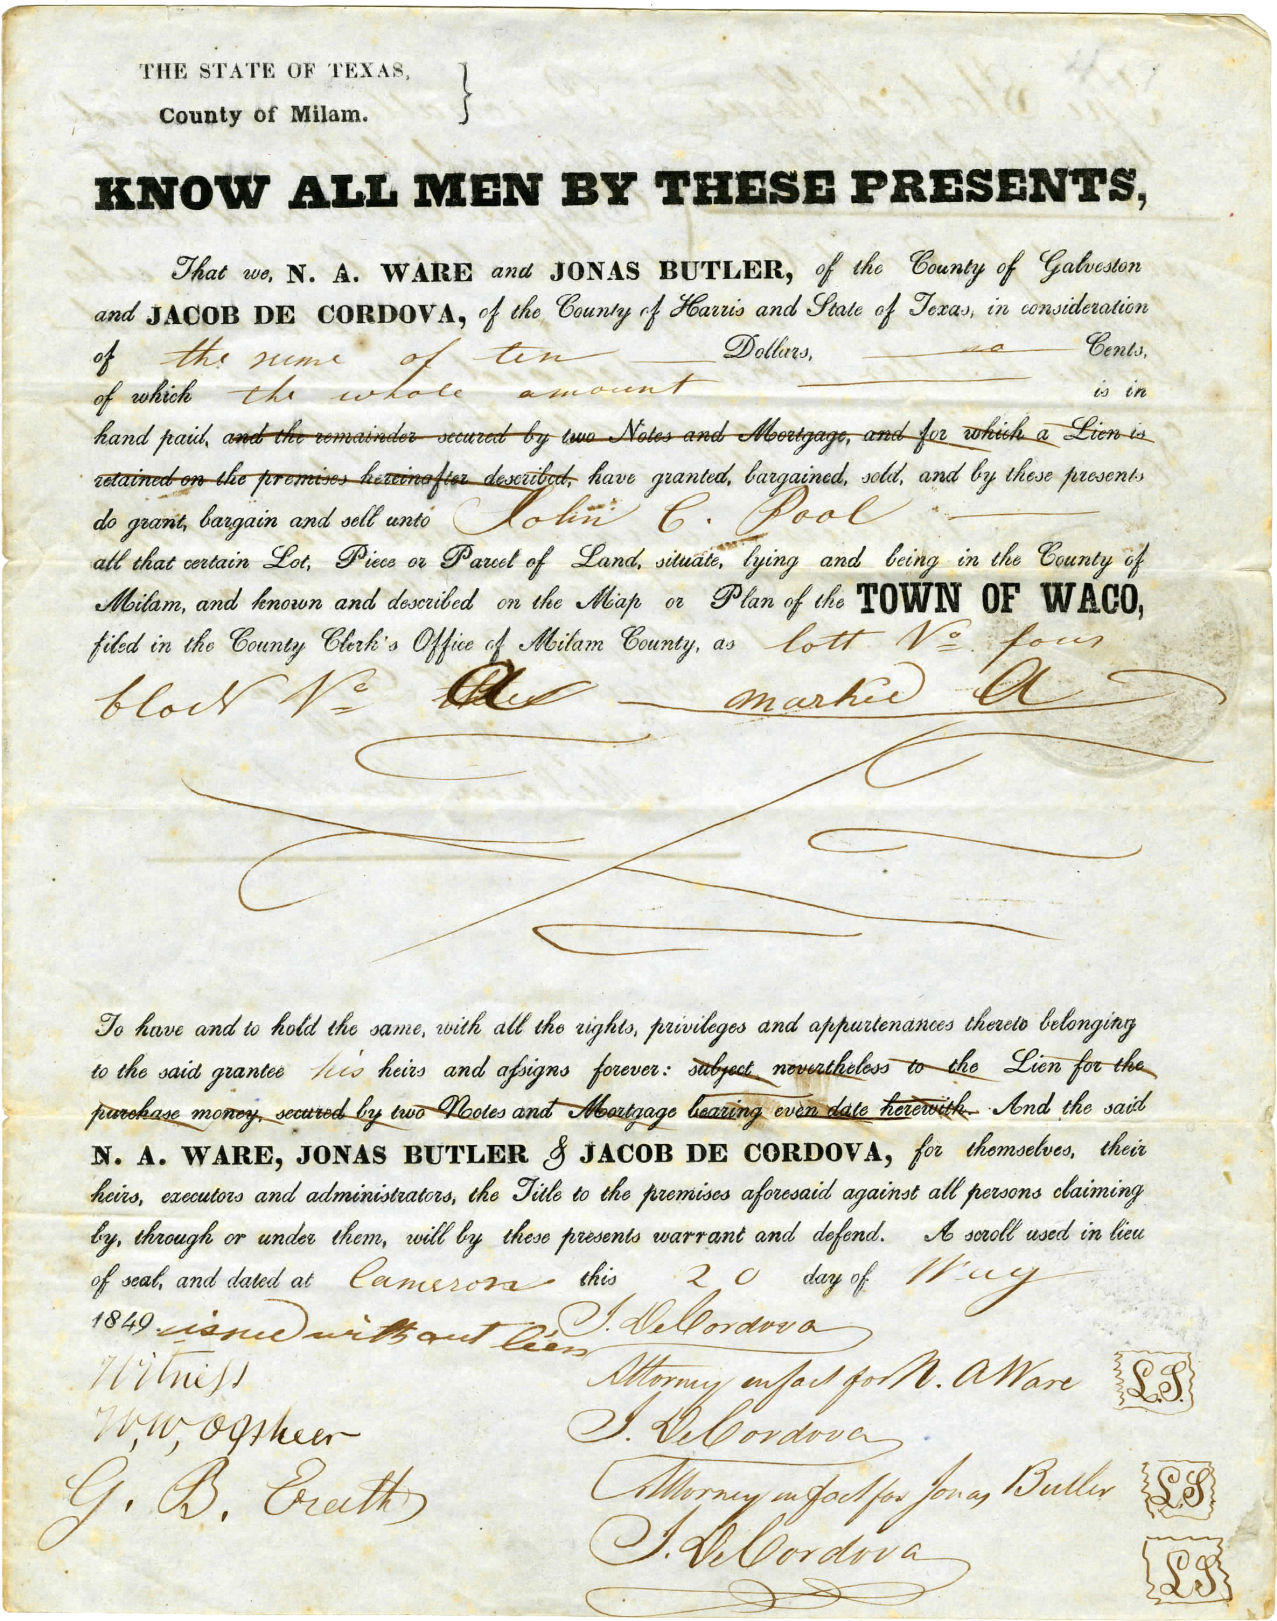 THE STATE OF TEXAS,
County of Milam.
KNOW ALL MEN BY THESE PRESENTS,
That we, N. A. WARE and JONAS BUTLER, of the County of Galveston
and JACOB DE CORDOVA, of the County of Harris and State of Texas, in consideration
of the sume of ten Dollars, no Cents,
of which the whole amount is in
hand paid, and the remainder secured by two Notes and Mortgage, and for which a Lien is
retained on the premises hereinafter described, have granted, bargained, sold, and by these presents
do grant, bargain and sell unto John C. Pool
all that certain Lot, Piece or Parcel of Land, situate, lying and being in the County of
Milam, and known and described on the Map or Plan of the TOWN OF WACO,
filed in the County Clerk's Office of Milam County, as lott No. four
block No. A marked A
To have and to hold the same, with all the rights, privileges and appurtenances thereto belonging
to the said grantee his heirs and assigns forever: subject nevertheless to the Lien for the
purchase money, secured by two Notes and Mortgage bearing even date herewith. And the said
N. A. WARE, JONAS BUTLER & JACOB DE CORDOVA, for themselves, their
heirs, executors and administrators, the Title to the premises aforesaid against all persons claiming
by, through or under them, will by these presents warrant and defend. A scroll used in lieu
of seal, and dated at Cameron this 20 day of May
1849 issued without lien J. De Cordova
Witness Attorney in fact for N. A Ware L.S.
W, W, J. De Cordova
G. B. Erath Attorney in fact for Jonas Butler L.S.
J. De Cordova L.S.